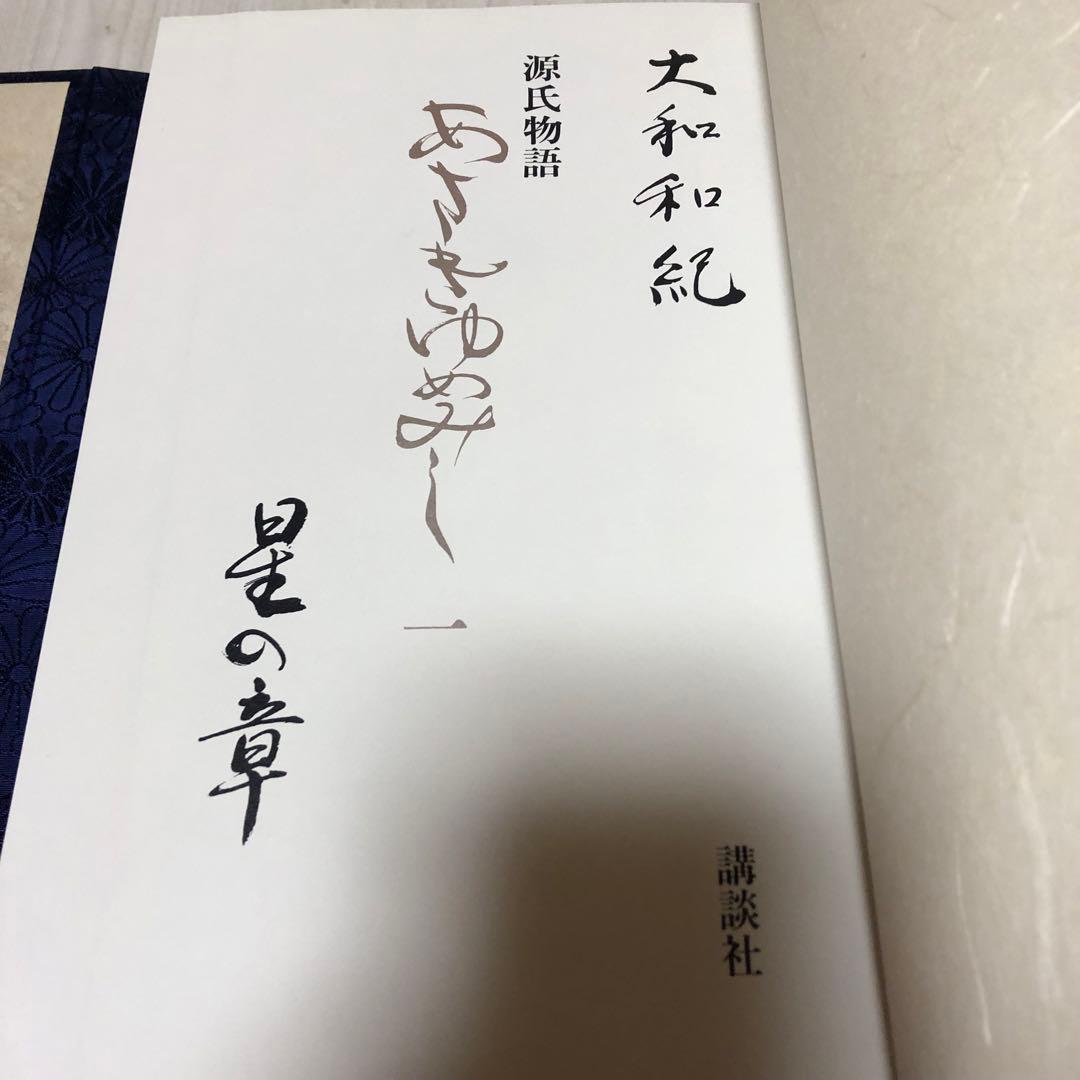 大和和紀
源氏物語
あさきゆめみし 一
星の章
講談社